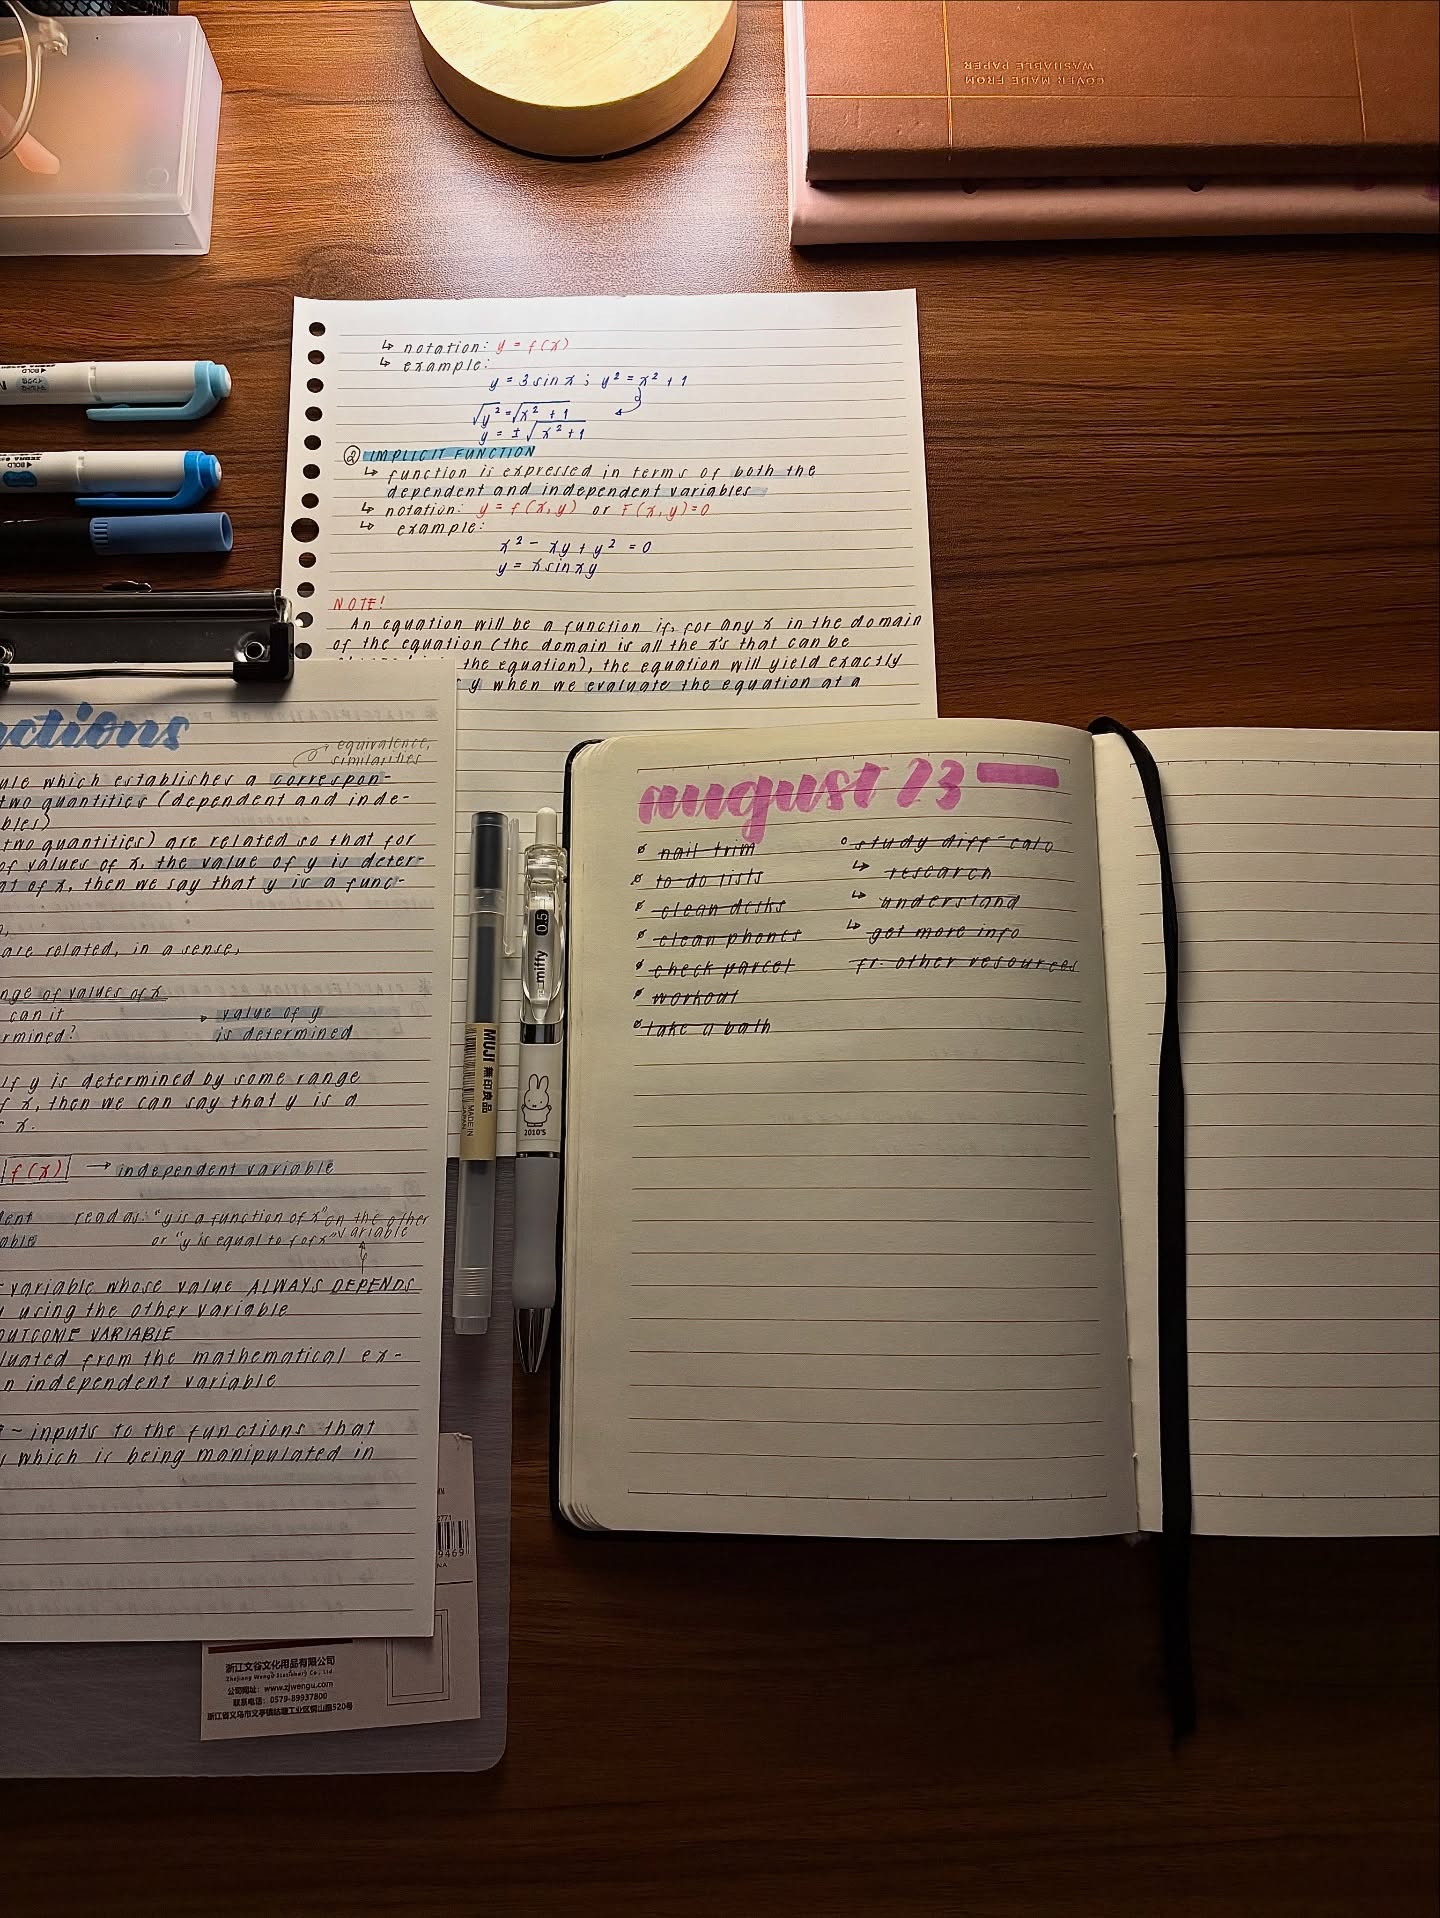 COVER MADE FROM
WASHABLE PAPER
↳ notation: y = f(x)
↳ example:
y = 3 sin x ; y² = x² + 1
√y² = √x² + 1
y = ± √x² + 1
② IMPLICIT FUNCTION
↳ function is expressed in terms of both the
dependent and independent variables
↳ notation: y = f(x, y) or F(x, y) = 0
↳ example:
x² - xy + y² = 0
y = x sin xy
NOTE!
An equation will be a function if, for any x in the domain
of the equation (the domain is all the x's that can be
the equation), the equation will yield exactly
y when we evaluate the equation at a
BOLD
BOLD
ctions
equivalence,
similarities
ule which establishes a correspon-
two quantities (dependent and inde-
bles)
two quantities) are related so that for
of values of x, the value of y is deter-
at of x, then we say that y is a func-
are related, in a sense,
nge of values of x
can it → value of y
rmined? is determined
If y is determined by some range
f x, then we can say that y is a
x.
f(x) → independent variable
dent read as: "y is a function of x" on the other
able or "y is equal to f of x" variable
variable whose value ALWAYS DEPENDS
using the other variable
OUTCOME VARIABLE
luated from the mathematical ex-
n independent variable
- inputs to the functions that
which is being manipulated in
浙江文谷文化用品有限公司
Zhejiang Wengu Stationery Co., Ltd.
公司网址: www.zjwengu.com
联系电话: 0579-89937800
浙江省义乌市义亭镇姑塘工业区铜山路520号
2771
9469
MUJI 無印良品
MADE IN
JAPAN
miffy 0.5
2010'S
august 23
nail trim
to-do lists
clean desks
clean phones
check parcel
workout
take a bath
study diff calc
↳ research
↳ understand
↳ get more info
fr. other resources